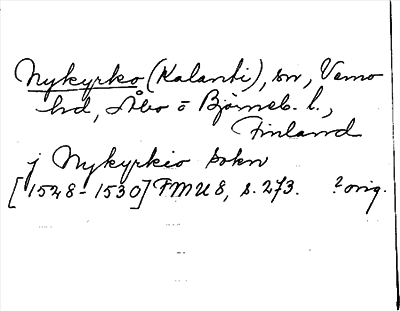 Nykyrko (Kalanti), sn, Vemo
hd, Åbo o Björneb. l.,
Finland
j Nykyrkio sokn
[1528-1530] FMU 8, s. 273. ? orig.